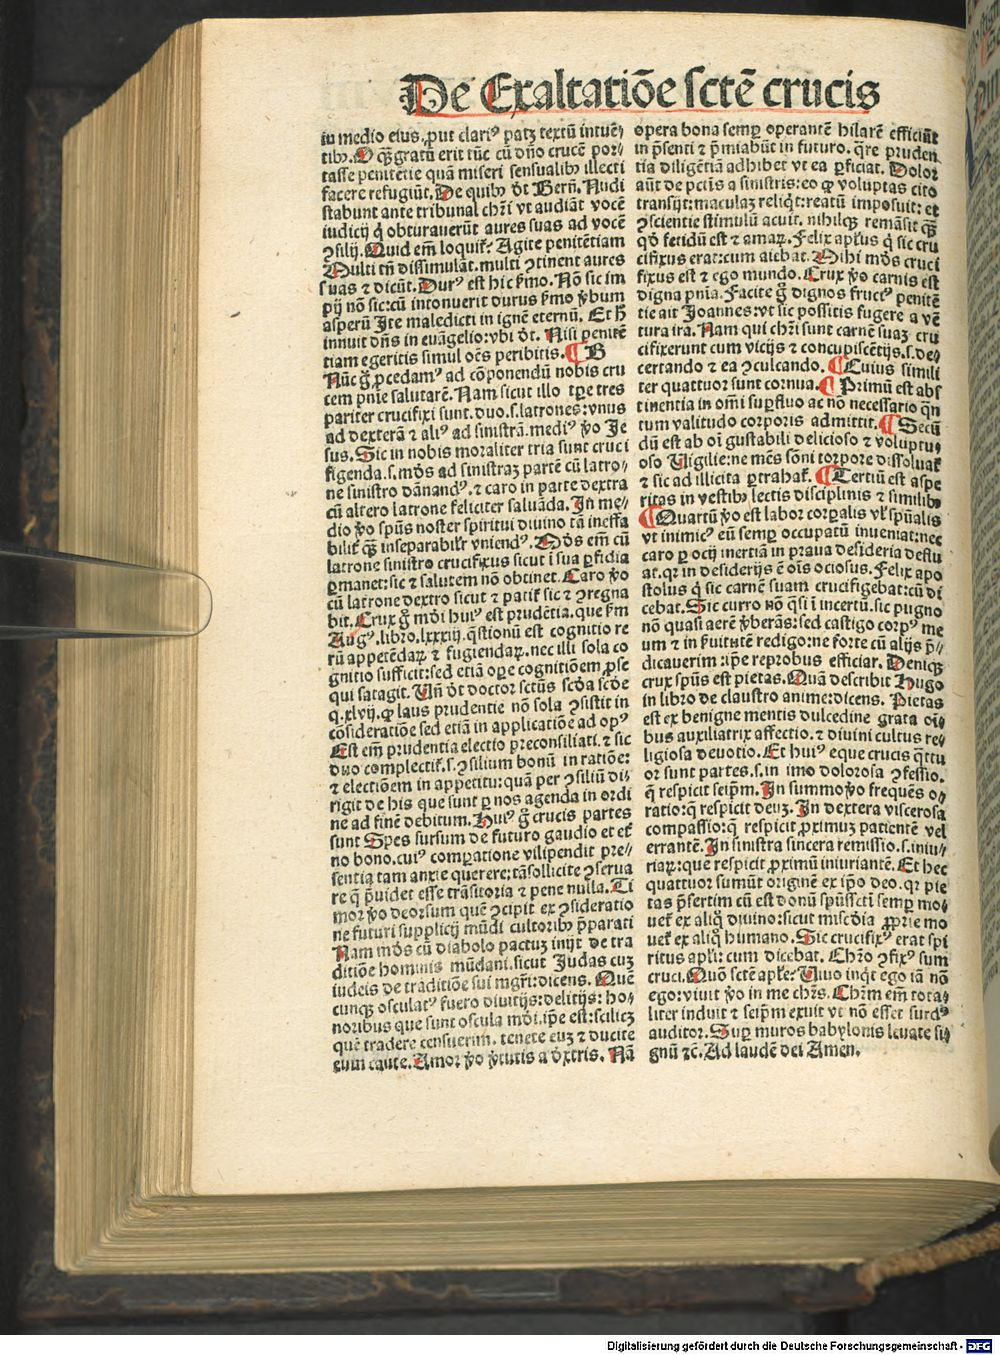 De Exaltatiōe sctē crucis
in medio eius, ꝓut clariꝰ patꝫ textū intuē⸗
tibꝫ. O qꝫ̄ gratū erit tūc cū dn̄o crucē por⸗
tasse penitētie quā miseri sensualibꝫ illecti
facere refugiūt. De quibꝫ ōt Bern̄. Nudi
stabunt ante tribunal chr̄i vt audiāt vocē
iudicij q̇ obturauerūt aures suas ad vocē
ꝯsilij. Quid em̄ loquit᷑? Agite penitētiam
Multi tn̄ dissimulāt. multi ꝯtinent aures
suas ⁊ dicūt. Durꝰ est hic s̄mo. Nō sic im
pij nō sic: cū intonuerit durus s̄mo v̄bum
asperū Ite maledicti in ignē eternū. Et h̄
innuit dn̄s in euāgelio: vbi ōt. Nisi penitē
tiam egeritis simul oēs peribitis. ¶ B
Nūc g̊ ꝓcedamꝰ ad cōponendū nobis cru
cem pn̄ie salutarē. Nam sicut illo tꝑe tres
pariter crucifixi sunt. duo. s. latrones: vnus
ad dexterā ⁊ aliꝰ ad sinistrā. mediꝰ v̄o Je
sus. Sic in nobis moraliter tria sunt cruci
figenda. s. mōs ad sinistraꝫ partē cū latro⸗
ne sinistro dānandꝰ. ⁊ caro in parte dextra
cū altero latrone feliciter saluāda. In me⸗
dio v̄o spūs noster spiritui diuino tā ineffa
bilit᷑ qꝫ̄ inseparabilr̄ vniendꝰ. Mōs em̄ cū
latrone sinistro crucifixus sicut ī sua ꝑfidia
ꝑmanet: sic ⁊ salutem nō obtinet. Caro v̄o
cū latrone dextro sicut ⁊ patit᷑ sic ⁊ ꝯregna
bit. Crux g̊ mōi huiꝰ est prudētia. que s̄m
Augꝰ. libro. lxxxiij. q̄stionū est cognitio re
rū appetēdaꝝ ⁊ fugiendaꝝ. nec illi sola co
gnitio sufficit: sed etiā oꝑe cognitiōem ꝓse
qui satagit. Un̄ ōt doctor sctūs scd̄a scd̄e
q. xlvij. ꝙ laus prudentie nō sola ꝯsistit in
cōsideratiōe sed etiā in applicatiōe ad opꝰ
Est em̄ prudentia electio preconsiliati. ⁊ sic
duo complectit᷑. s. ꝯsilium bonū in ratiōe:
⁊ electiōem in appetitu: quā per ꝯsiliū di⸗
rigit de his que sunt ꝑ nos agenda in ordi
ne ad finē debitum. Huiꝰ g̊ crucis partes
sunt Spes sursum de futuro gaudio et et᷑
no bono. cuiꝰ comꝑatione vilipendit pre⸗
sentia tam anxie querere; tā sollicite ꝯserua
re q̄ p̄uidet esse trāsitoria ⁊ pene nulla. Ti
mor v̄o deorsum quē ꝯcipit ex ꝯsideratio
ne futuri supplicij mūdi cultoribꝫ p̄parati
Nam mōs cū diabolo pactuꝫ inijt de tra
ditiōe hominis mūdani. sicut Judas cuꝫ
iudeis de traditiōe sui mgr̄i: dicens. Quē
cunqꝫ osculatꝰ fuero diuitijs: delitijs: ho⸗
noribus que sunt oscula mōi. ip̄e est: scilicꝫ
quē tradere censuerim. tenete euꝫ ⁊ ducite
eum caute. Amor v̄o v̄tutis a dextris. Nā
opera bona semꝑ operantē hilarē efficiūt
in p̄senti ⁊ p̄miabūt in futuro. q̄re pruden
tia diligētiā adhibet vt ea ꝑficiat. Dolor
aūt de pctīs a sinistris: eo ꝙ voluptas cito
transijt: maculaꝫ reliq̄t: reatū imposuit: et
ꝯscientie stimulū acuit. nihilqꝫ remāsit qꝫ̄
qd̄ fetidū est ⁊ amaꝝ. Felix apl̄us q̇ sic cru
cifixus erat: cum aiebat. Mihi mōs cruci
fixus est ⁊ ego mundo. Crux v̄o carnis est
digna pn̄ia. Facite g̊ dignos fructꝰ penitē
tie ait Joannes: vt sic possitis fugere a vē
tura ira. Nam qui chr̄i sunt carnē suaꝫ cru
cifixerunt cum vicijs ⁊ concupiscētijs. s. de⸗
certando ⁊ ea ꝯculcando. ¶ Cuius simili
ter quattuor sunt cornua. ¶ Primū est abs
tinentia in om̄i suꝑfluo ac nō necessario q̄n
tum valitudo corporis admittit. ¶ Secū
dū est ab oī gustabili delicioso ⁊ voluptu⸗
oso Uigilie: ne mēs sōni torpore dissoluat᷑
⁊ sic ad illicita ꝑtrahat᷑. ¶ Tertiū est aspe
ritas in vestibꝫ lectis disciplinis ⁊ similibꝫ
¶ Quartū v̄o est labor corꝑalis vl̓ spūalis
vt inimicꝰ eū semꝑ occupatū inueniat: nec
caro ꝑ ocij inertiā in praua desideria deflu⸗
at. qr in desiderijs ē oīs ociosus. Felix apo
stolus q̇ sic carnē suam crucifigebat: cū di
cebat. Sic curro nō q̄si ī incertū. sic pugno
nō quasi aerē v̄berās: sed castigo corpꝰ me
um ⁊ in s̄uitutē redigo: ne forte cū alijs p̄⸗
dicauerim: ip̄e reprobus efficiar. Deniqꝫ
crux spūs est pietas. Quā describit Hugo
in libro de claustro anime: dicens. Pietas
est ex benigne mentis dulcedine grata oī⸗
bus auxiliatrix affectio. ⁊ diuini cultus re⸗
ligiosa deuotio. Et huiꝰ eque crucis q̄ttu
or sunt partes. s. in imo dolorosa ꝯfessio.
q̄ respicit seip̄m. In summo v̄o frequēs o⸗
ratio: q̄ respicit deuꝫ. In dextera viscerosa
compassio: q̄ respicit ꝓximuꝫ patientē vel
errantē. In sinistra sincera remissio. s. iniu⸗
riaꝝ: que respicit ꝓximū iniuriantē. Et hec
quattuor sumūt originē ex ip̄o deo. qr pie
tas p̄sertim cū est donū spūssctī semꝑ mo⸗
uet᷑ ex aliq̊ diuino: sicut misc̄dia ꝓprie mo
uet᷑ ex aliq̊ humano. Sic crucifixꝰ erat spi
ritus apl̄i: cum dicebat. Chr̄o ꝯfixꝰ sum
cruci. Quō sctē apl̄e? Uiuo inq̄t ego iā nō
ego: viuit v̄o in me chr̄s. Chr̄m em̄ tota⸗
liter induit ⁊ seip̄m exuit vt nō esset surdꝰ
auditor. Suꝑ muros babylonis leuate si⸗
gnū ⁊c̄. Ad laudē dei Amen.
Digitalisierung gefördert durch die Deutsche Forschungsgemeinschaft - DFG